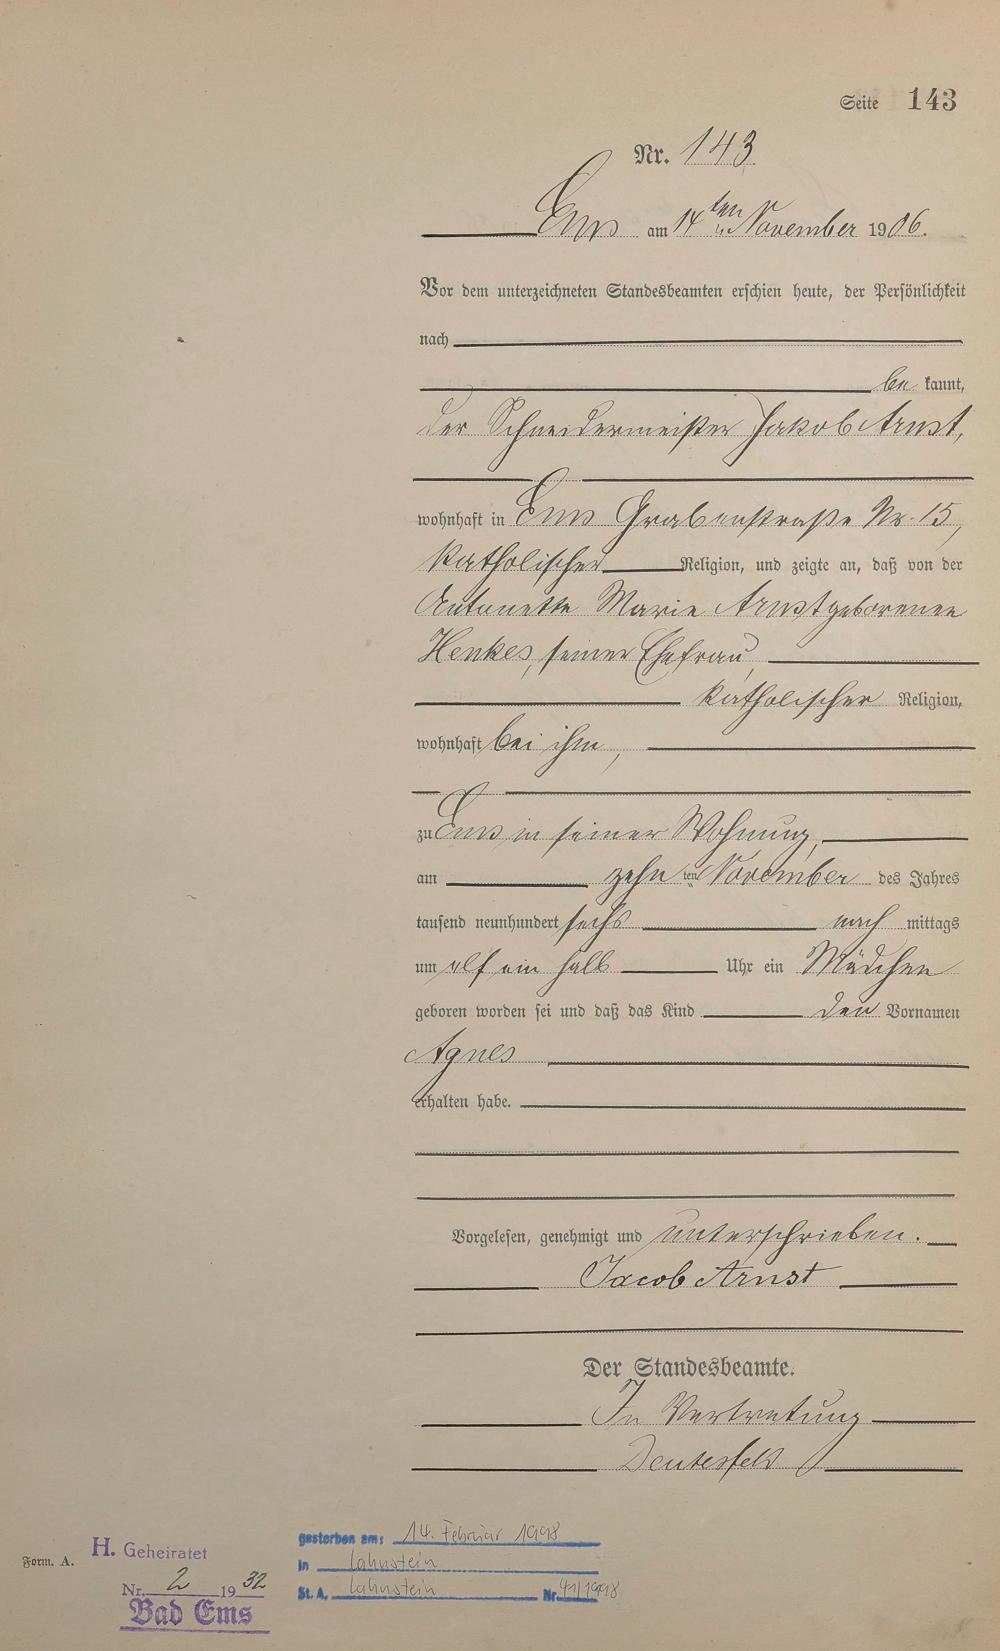 Seite 143
Nr. 143
Ems am 14ten November 1906.
Vor dem unterzeichneten Standesbeamten erschien heute, der Persönlichkeit
nach
be kannt,
der Schneidermeister Jakob Arnst,
wohnhaft in Ems Grabenstraße Nr. 15,
katholischer Religion, und zeigte an, daß von der
Antonette Marie Arnst geborenen
Henkes, seiner Ehefrau,
katholischer Religion,
wohnhaft bei ihm,
zu Ems in seiner Wohnung,
am zehn ten November des Jahres
tausend neunhundert sechs nach mittags
um elf ein halb Uhr ein Mädchen
geboren worden sei und daß das Kind den Vornamen
Agnes
erhalten habe.
Vorgelesen, genehmigt und unterschrieben.
Jacob Arnst
Der Standesbeamte.
In Vertretung
gestorben am: 14. Februar 1998
in Lahnstein
St. A. Lahnstein Nr. 41/1998
Form. A.
H. Geheiratet
Nr. 2 1932
Bad Ems